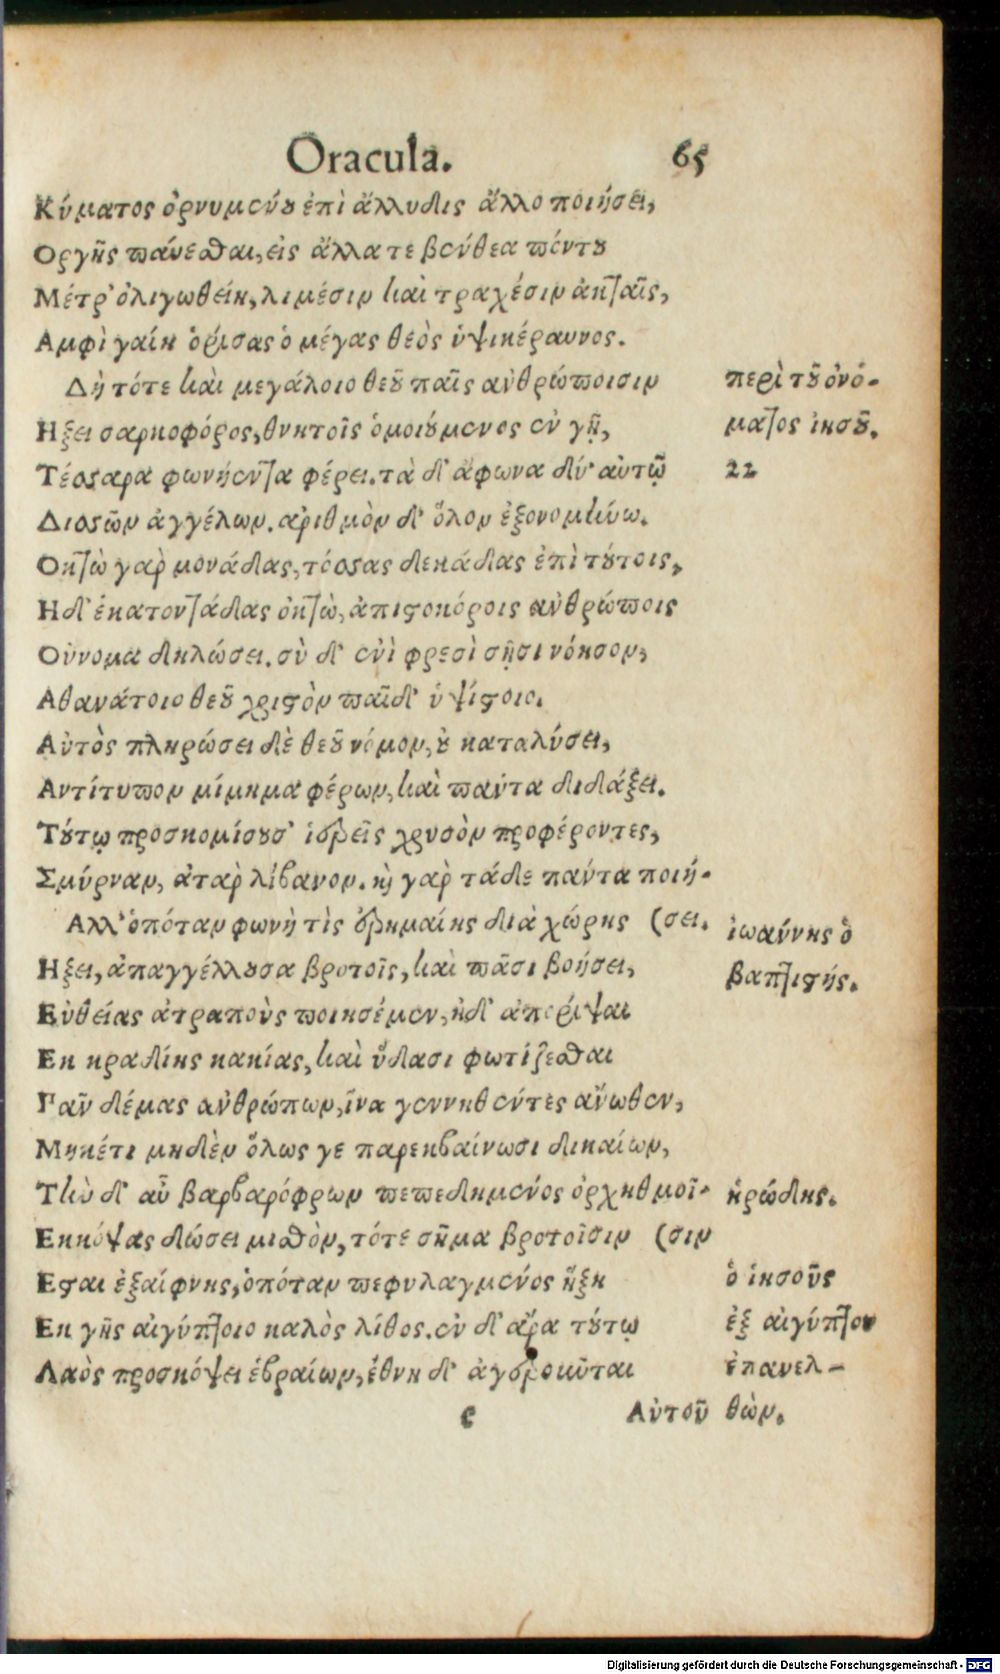 Oracula. 65
Κύματος ὀρνυμένου ἐπὶ ἄλλυδις ἄλλο ποιήσει,
Οργῆς παύεσθαι, εἰς ἄλλα τε βένθεα πόντου
Μέτρ' ὀλιγωθείη, λιμέσιν καὶ τραχέσιν ἀκταῖς,
Αμφὶ γαίῃ ὁρίσας ὁ μέγας θεὸς ὑψικέραυνος.
Δὴ τότε καὶ μεγάλοιο θεοῦ παῖς ἀνθρώποισιν
Ηξει σαρκοφόρος, θνητοῖς ὁμοιούμενος ἐν γῇ,
Τέσσαρα φωνήεντα φέρει. τὰ δ' ἄφωνα δύ' αὐτῷ
Δισσῶν ἀγγέλων. ἀριθμὸν δ' ὅλον ἐξονομήνω.
Οκτὼ γὰρ μονάδας, τόσσας δεκάδας ἐπὶ τούτοις,
Ηδ' ἑκατοντάδας ὀκτὼ, ἀπιστοκόροις ἀνθρώποις
Οὔνομα δηλώσει. σὺ δ' ἐνὶ φρεσὶ σῇσι νόησον,
Αθανάτοιο θεοῦ χριστὸν παῖδ' ὑψίστοιο.
Αὐτὸς πληρώσει δὲ θεοῦ νόμον, οὐ καταλύσει,
Αντίτυπον μίμημα φέρων, καὶ πάντα διδάξει.
Τούτῳ προσκομίσουσ' ἱερεῖς χρυσὸν προφέροντες,
Σμύρναν, ἀτὰρ λίβανον. καὶ γὰρ τάδε πάντα ποιή-
Αλλ' ὁπόταν φωνή τὶς ἐρημαίης διὰ χώρης (σει.
Ηξει, ἀπαγγέλλουσα βροτοῖς, καὶ πᾶσι βοήσει,
Εὐθείας ἀτραποὺς ποιησέμεν, ἠδ' ἀπορίψαι
Εκ κραδίης κακίας, καὶ ὕδασι φωτίζεσθαι
Παῦ δέμας ἀνθρώπων, ἵνα γεννηθέντες ἄνωθεν,
Μηκέτι μηδὲν ὅλως γε παρεκβαίνωσι δικαίων,
Τὴν δ' αὖ βαρβαρόφρων πεπεδημένος ὀρχηθμοῖ-
Εκκόψας δώσει μισθὸν, τότε σῆμα βροτοῖσιν (σιν
Εσται ἐξαίφνης, ὁπόταν πεφυλαγμένος ἥξῃ
Εκ γῆς αἰγύπτοιο καλὸς λίθος. ἐν δ' ἄρα τούτῳ
Λαὸς προσκόψει ἑβραίων, ἔθνη δ' ἀγεροῦνται
e Αὐτοῦ
περὶ τοῦ ὀνό-
ματος ἰησοῦ.
22
ἰωάννης ὁ
βαπτιστής.
ἡρώδης.
ὁ ἰησοῦς
ἐξ αἰγύπτου
ἐπανελ-
θὼν.
Digitalisierung gefördert durch die Deutsche Forschungsgemeinschaft - DFG